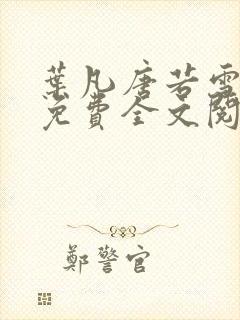 葉凡唐若雪
免費全文閱
鄭警官